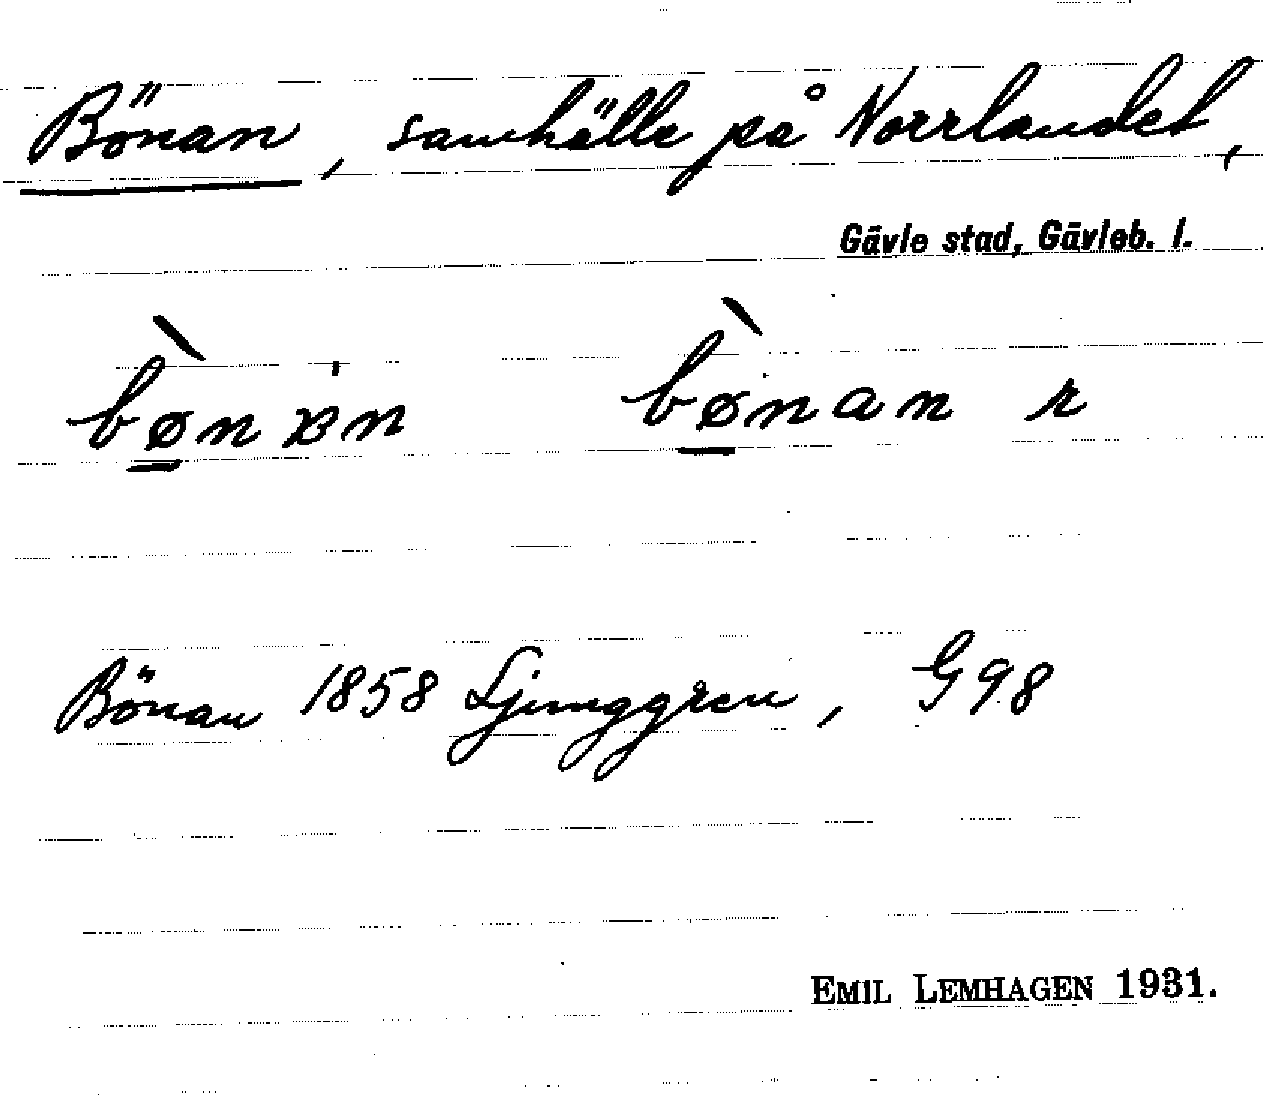 Bönan, samhälle på Norrlandet,
Gävle stad, Gävleb. l.
bø̀nan bø̀nan r
Bönan 1858 Ljunggren, G98
EMIL LEMHAGEN 1931.